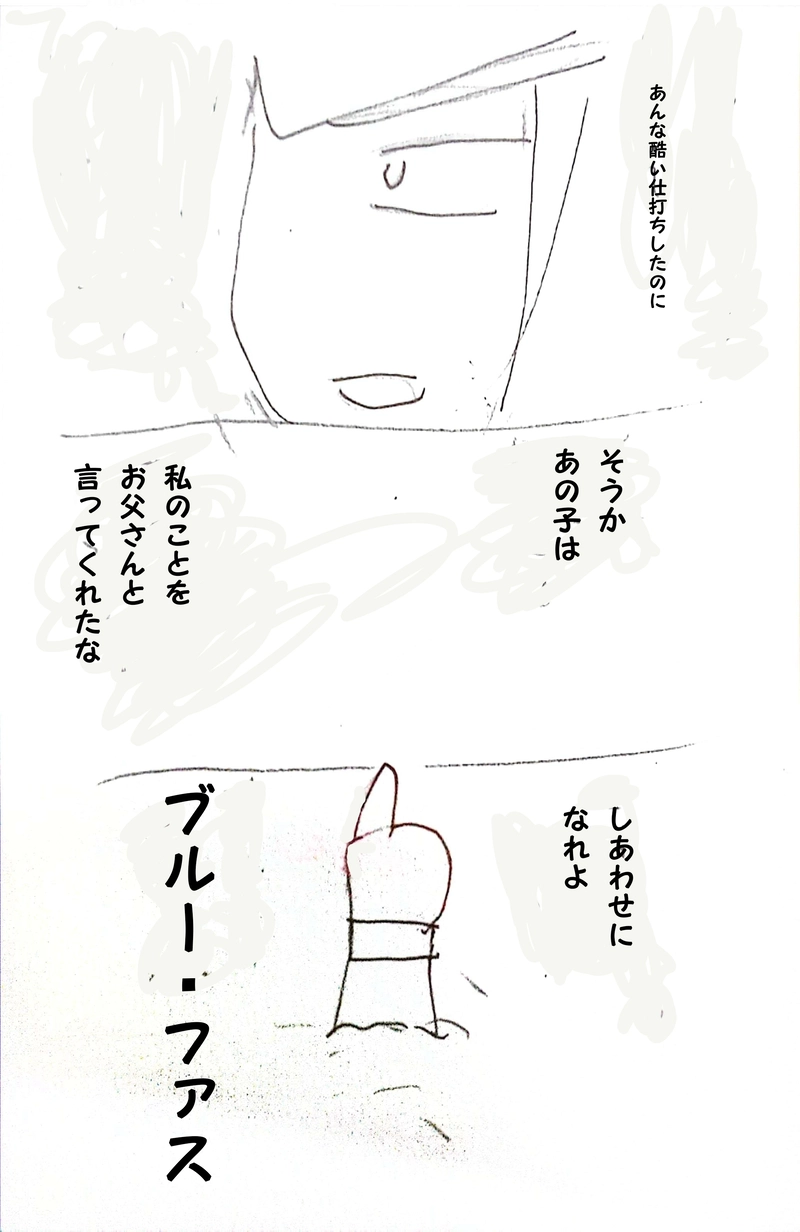 あんな酷い仕打ちしたのに
そうか
あの子は
私のことを
お父さんと
言ってくれたな
しあわせに
なれよ
ブルー・ファス